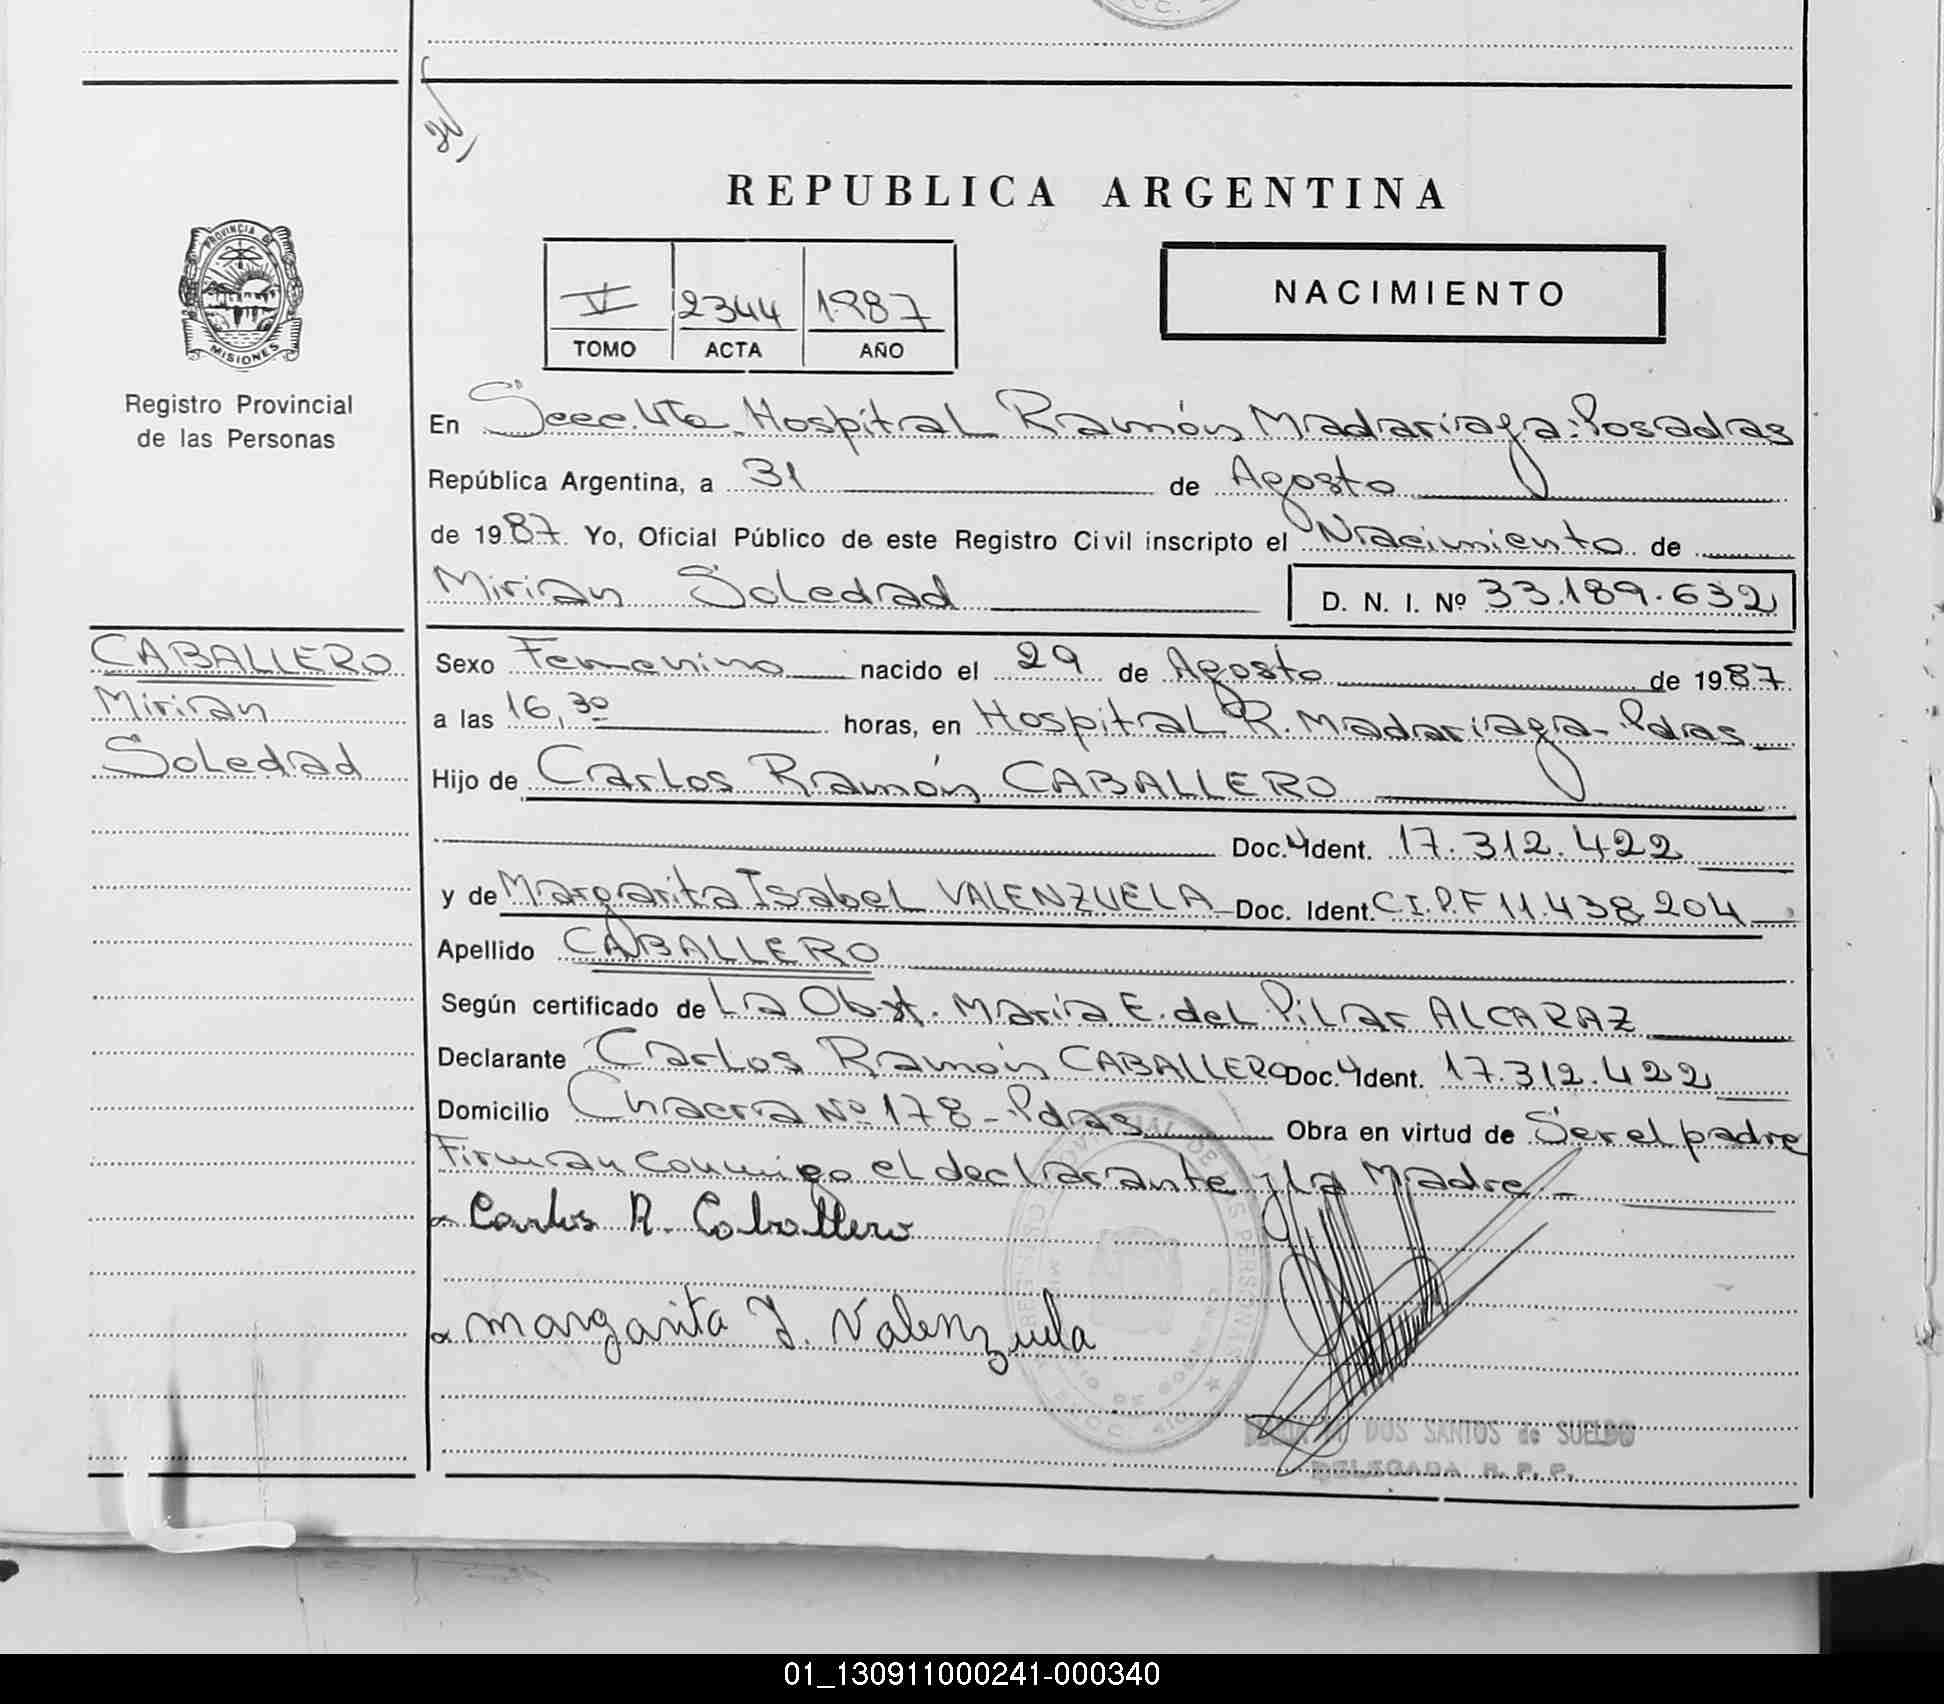 REPUBLICA ARGENTINA
PROVINCIA DE
MISIONES
Registro Provincial
de las Personas
V 2344 1987
TOMO ACTA AÑO
NACIMIENTO
En Secc. 4ta. Hospital Ramón Madariaga: Posadas
República Argentina, a 31 de Agosto
de 1987. Yo, Oficial Público de este Registro Civil inscripto el Nacimiento de
Mirian Soledad D. N. I. Nº 33.189.632
CABALLERO
Mirian
Soledad
Sexo Femenino nacido el 29 de Agosto de 1987
a las 16,30 horas, en Hospital R. Madariaga - Pdas
Hijo de Carlos Ramón CABALLERO
Doc. Ident. 17.312.422
y de Margarita Isabel VALENZUELA Doc. Ident. C.I.P.F 11.438.204
Apellido CABALLERO
Según certificado de La Obst. María E. del Pilar ALCARAZ
Declarante Carlos Ramón CABALLERO Doc. Ident. 17.312.422
Domicilio Chacra Nº 178 - Pdas Obra en virtud de Ser el padre
Firman conmigo el declarante y la Madre
Carlos R. Caballero
Margarita I. Valenzuela
DOS SANTOS de SUELDO
DELEGADA R. P. P.
01_130911000241-000340